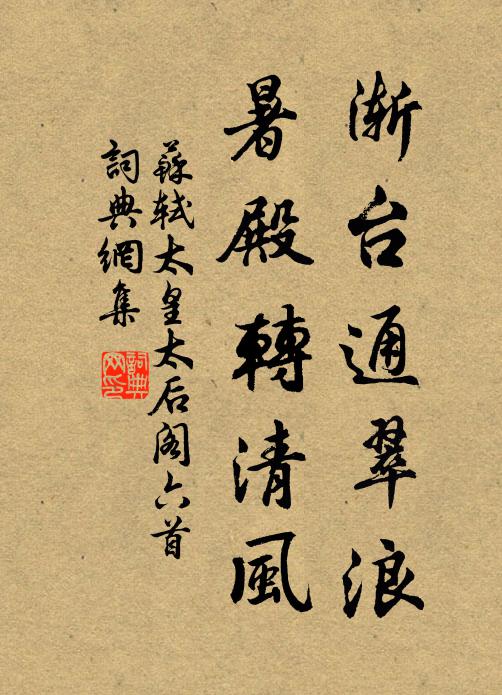 渐台通翠浪
暑殿轉清風
蘇轼太皇太后阁六首
詞典網集
詞典网印